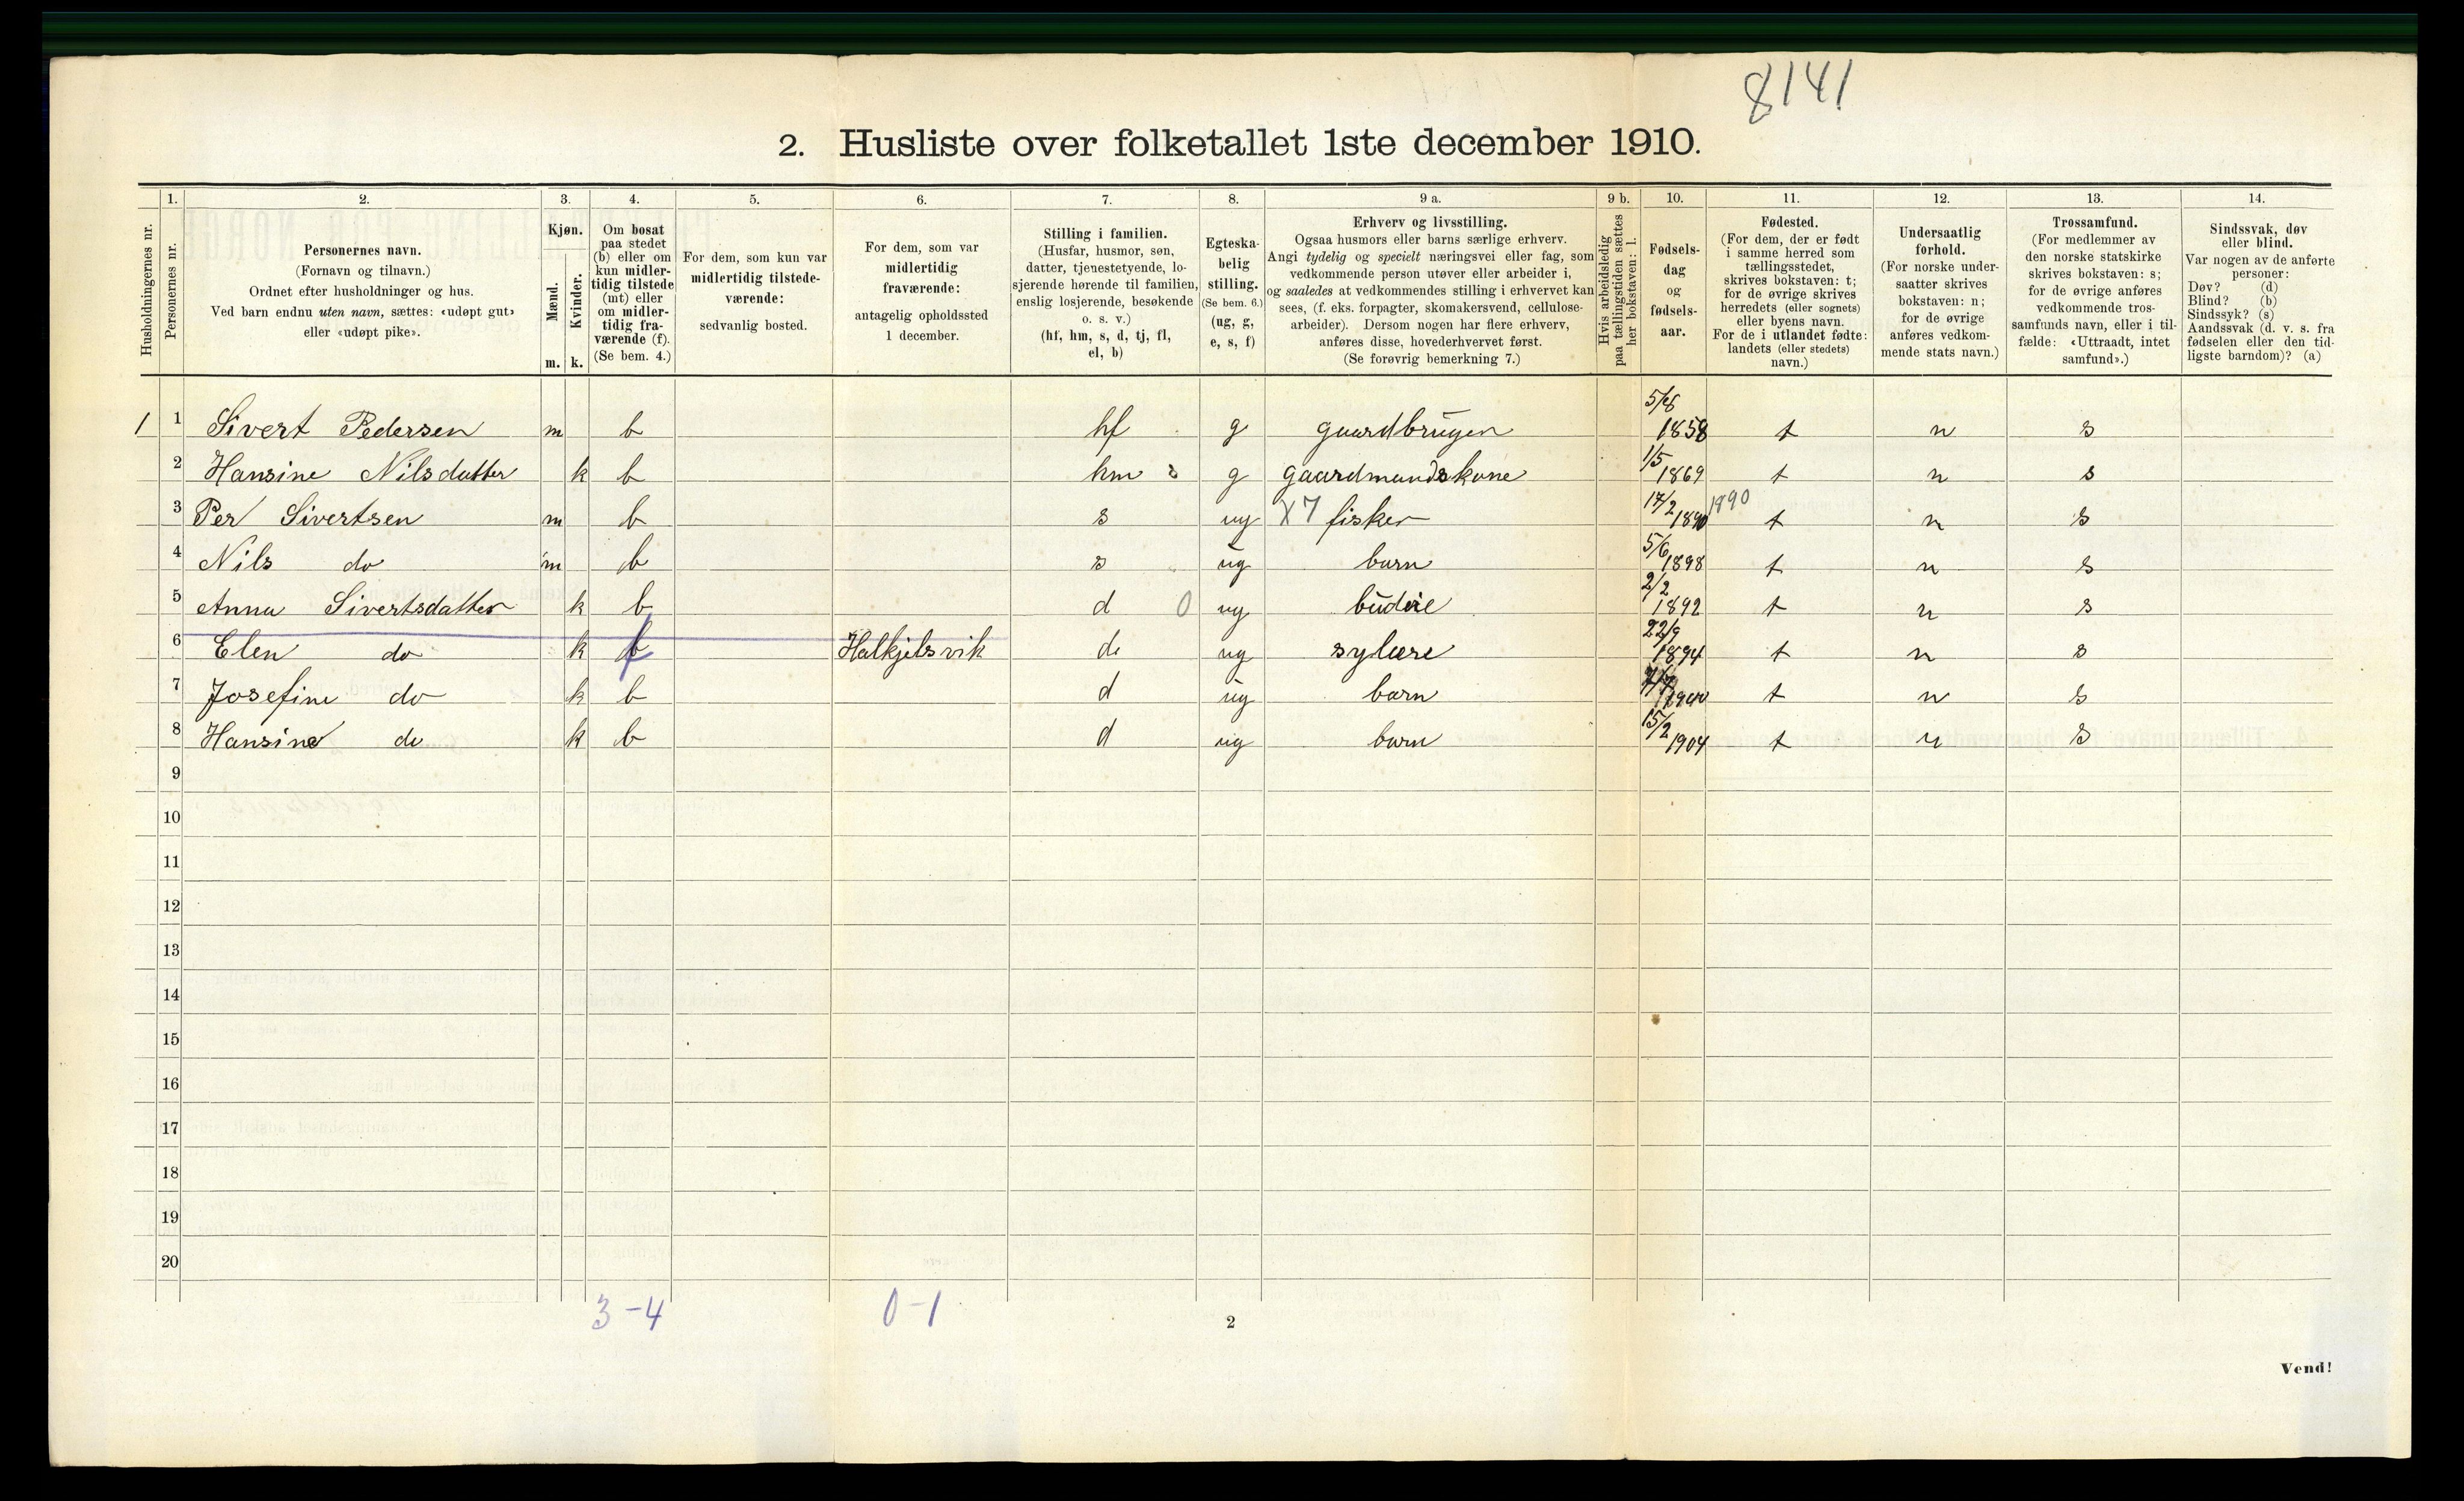 8141
2. Husliste over folketallet 1ste december 1910.
Husholdningernes nr.
1.
Personernes nr.
2.
Personernes navn.
(Fornavn og tilnavn.)
Ordnet efter husholdninger og hus.
Ved barn endnu uten navn, sættes: «udøpt gut»
eller «udøpt pike».
3.
Kjøn.
Mænd.
Kvinder.
m. k.
4.
Om bosat
paa stedet
(b) eller om
kun midler-
tidig tilstede
(mt) eller
om midler-
tidig fra-
værende (f).
(Se bem. 4.)
5.
For dem, som kun var
midlertidig tilstede-
værende:
sedvanlig bosted.
6.
For dem, som var
midlertidig
fraværende:
antagelig opholdssted
1 december.
7.
Stilling i familien.
(Husfar, husmor, søn,
datter, tjenestetyende, lo-
sjerende hørende til familien,
enslig losjerende, besøkende
o. s. v.)
(hf, hm, s, d, tj, fl,
el, b)
8.
Egteska-
belig
stilling.
(Se bem. 6.)
(ug, g,
e, s, f)
9 a.
Erhverv og livsstilling.
Ogsaa husmors eller barns særlige erhverv.
Angi tydelig og specielt næringsvei eller fag, som
vedkommende person utøver eller arbeider i,
og saaledes at vedkommendes stilling i erhvervet kan
sees, (f. eks. forpagter, skomakersvend, cellulose-
arbeider). Dersom nogen har flere erhverv,
anføres disse, hovederhvervet først.
(Se forøvrig bemerkning 7.)
9 b.
Hvis arbeidsledig
paa tællingstiden sættes
her bokstaven: l.
10.
Fødsels-
dag
og
fødsels-
aar.
11.
Fødested.
(For dem, der er født
i samme herred som
tællingsstedet,
skrives bokstaven: t;
for de øvrige skrives
herredets (eller sognets)
eller byens navn.
For de i utlandet fødte:
landets (eller stedets)
navn.)
12.
Undersaatlig
forhold.
(For norske under-
saatter skrives
bokstaven: n;
for de øvrige
anføres vedkom-
mende stats navn.)
13.
Trossamfund.
(For medlemmer av
den norske statskirke
skrives bokstaven: s;
for de øvrige anføres
vedkommende tros-
samfunds navn, eller i til-
fælde: «Uttraadt, intet
samfund».)
14.
Sindssvak, døv
eller blind.
Var nogen av de anførte
personer:
Døv? (d)
Blind? (b)
Sindssyk? (s)
Aandssvak (d. v. s. fra
fødselen eller den tid-
ligste barndom)? (a)
1 1 Sivert Pedersen m b hf g gaardbruger 1858 t n s
2 Hansine Nilsdatter k b hm g gaardmandskone 1/5 1869 t n s
3 Per Sivertsen m b s ug X7 fisker 17/2 1890 1890 t n s
4 Nils do m b s ug barn 5/6 1898 t n s
5 Anna Sivertsdatter k b d 0 ug budeie 2/2 1892 t n s
6 Elen do k f Halkjelsvik d ug sylære 22/9 1894 t n s
7 Josefine do k b d ug barn 1900 t n s
8 Hansine do k b d ug barn 15/2 1904 t n s
9
10
11
12
13
14
15
16
17
18
19
20
3-4 0-1
2
Vend!